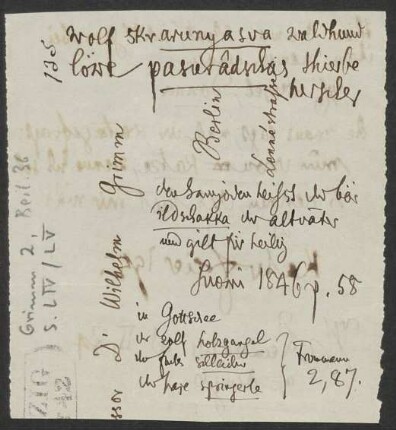 135
wolf skvarunyasva waldhund
löwe pasurâdschas thierbe
herscher
den Samojeden heißt der bär
ildschakka der altvater
und gilt für heilig
Suomi 1846 p. 58
in Gottschee
der wolf holzgangel
der fuchs
der hase springerle
Frommann
2,87.
ssor Dr Wilhelm Grimm
Berlin
Lennéstrasse
Grimm 2, Beil 36
S. LIV / LV